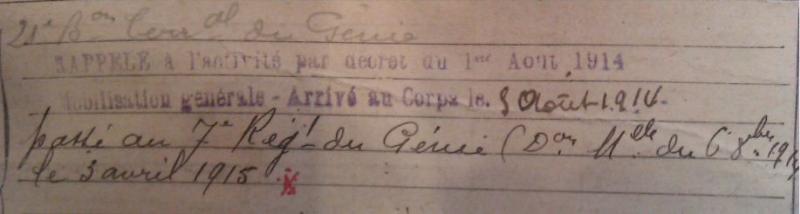 21e Bon Terral du Génie
RAPPELÉ à l'activité par décret du 1er Août 1914
Mobilisation générale - Arrivé au Corps le. 3 Août 1914-
passé au 7e Régt du Génie (Don Mlle du 6 8bre 1914
le 3 avril 1915